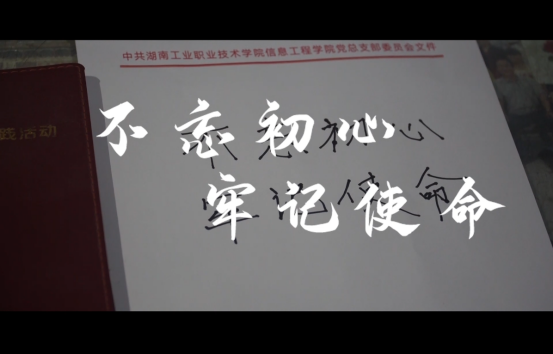 中共湖南工业职业技术学院信息工程学院党总支部委员会文件
践活动
不忘初心
牢记使命
不忘初心
牢记使命